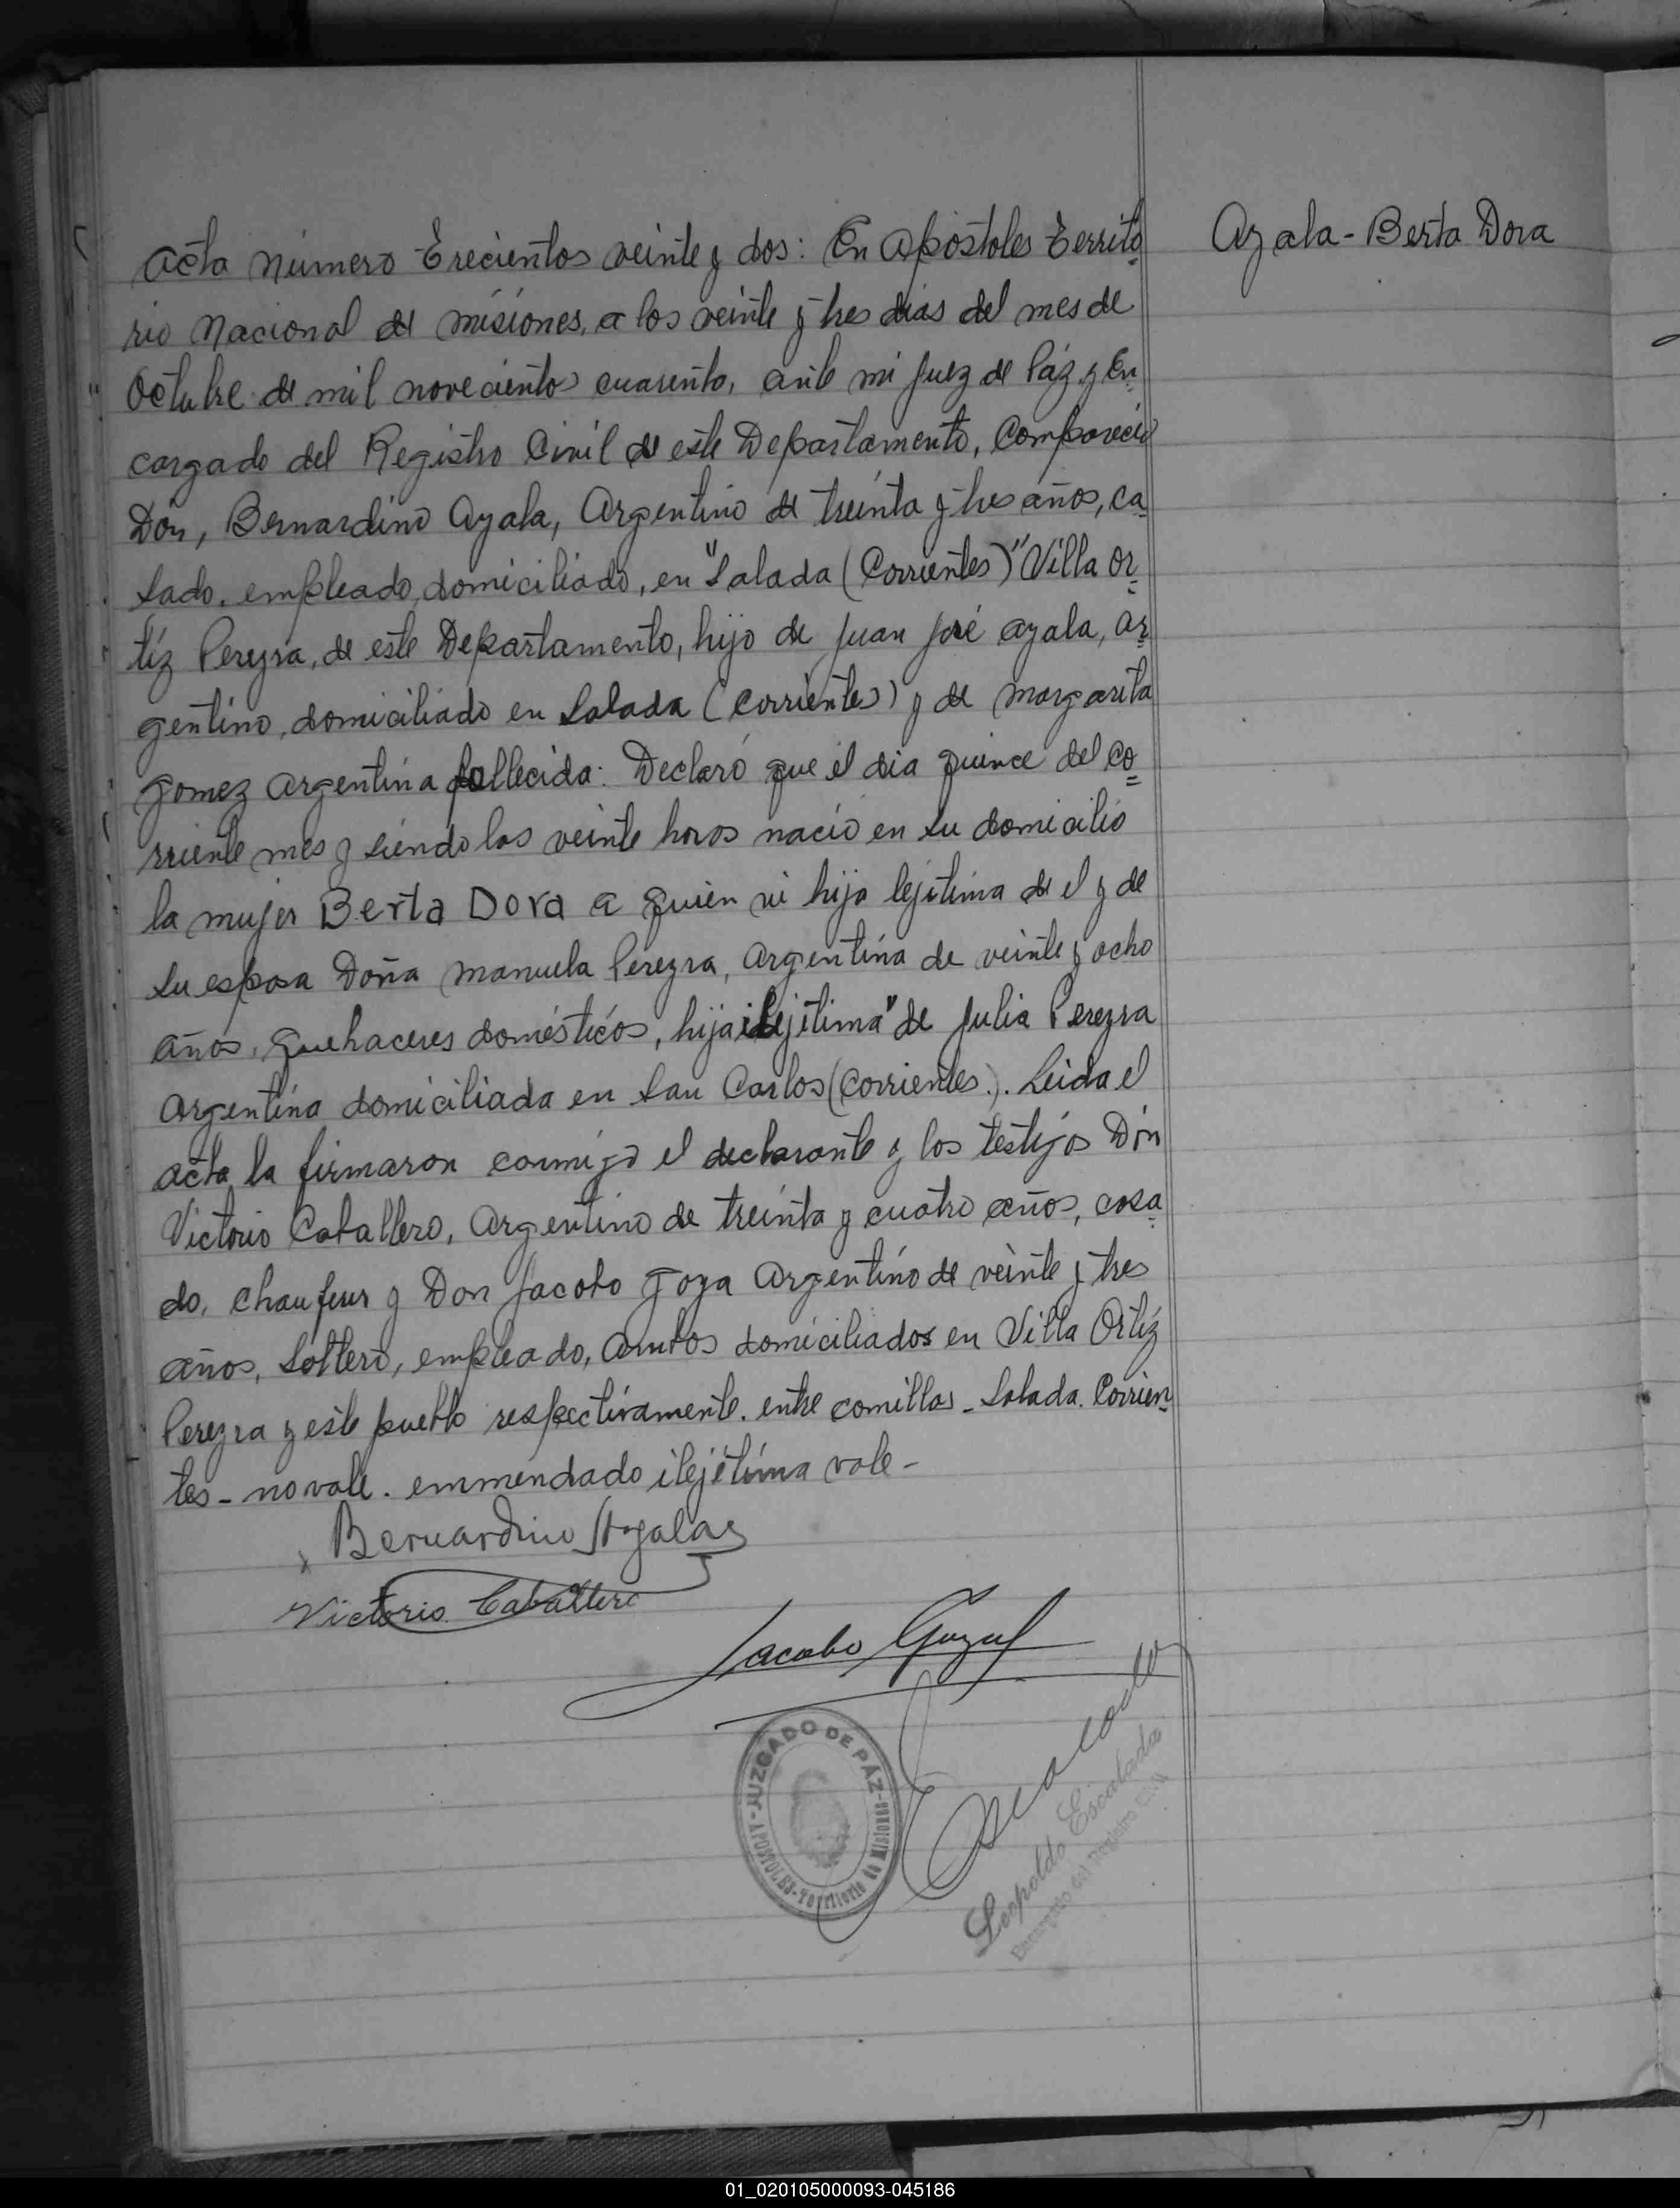 Acta número Trecientos veinte y dos: En Apostoles Territo
Ayala - Berta Dora
rio Nacional de misiones, a los veinte y tres dias del mes de
Octubre de mil novecientos cuarenta, ante mi Juez de Páz y En
cargado del Registro Civil de este Departamento, Compareció
Don, Bernardino Ayala, Argentino de treinta y tres años, ca
sado, empleado, domiciliado, en "Salada (Corrientes)" Villa Or
tíz Pereyra, de este Departamento, hijo de Juan José ayala, ar
gentino, domiciliado en Salada (Corrientes) y de Margarita
Gomez argentina fallecida: Declaró que el dia quince del co
rriente mes y siendo las veinte horas nació en su domicilio
la mujer Berta Dora a quien vi hija lejitima de el y de
su esposa Doña Manuela Pereyra, Argentina de veinte y ocho
años, quehaceres domésticos, hija ilejitima" de Julia Pereyra
Argentina domiciliada en San Carlos (Corrientes). Leida el
acta la firmaron conmigo el declarante y los testigos Don
Victorio Caballero, Argentino de treinta y cuatro años, casa
do, Chaufeur y Don Jacobo Goya Argentino de veinte y tres
años, Soltero, empleado, ambos domiciliados en Villa Ortíz
Pereyra y este pueblo respectivamente. entre comillas - Salada. Corrien
tes - no vale. emmendado ilejítima vale -
Bernardino Ayala
Victorio Caballero
Jacobo
JUZGADO DE PAZ
APOSTOLES - Territorio de Misiones
Leopoldo Escalada
Encargado del Registro Civil
01_020105000093-045186